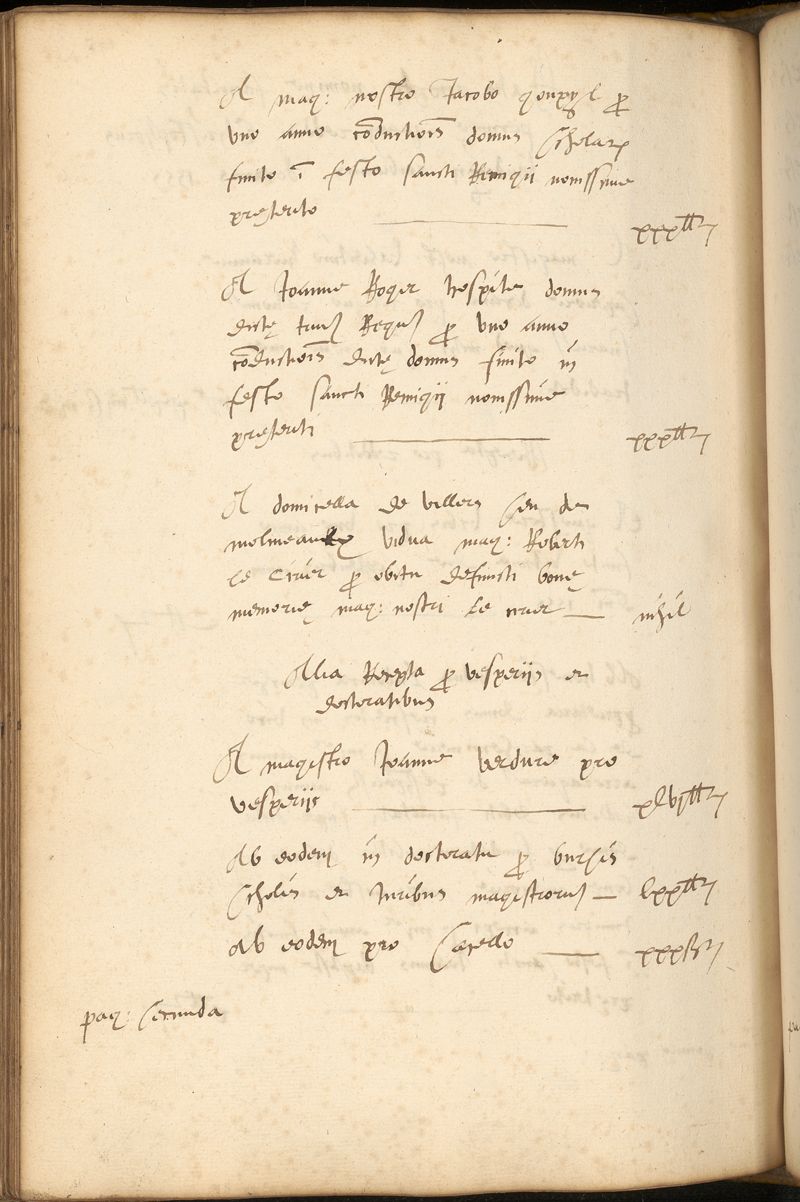 A mag: nostro Jacobo goupyl ꝓ
vno anno cōductiōis domus scholarꝫ
finito ī festo sancti Remigii nouissime
pręterito xxx lt
A Joanne Roger hospite domus
dictę triū Regū ꝓ vno anno
cōductiōis dictę domus finito in
festo sancti Remigii nouissime
pręteriti xxx lt
A domicella de villers seu de
vidua mag: Roberti
le Cirier ꝓ obitu defuncti bonę
memorię mag: nostri le cirier nihil
Alia Recepta ꝓ vesperiis et
doctoratibus
A magistro Joanne verdure pro
vesperiis xlvj lt
Ab eodem in doctoratu ꝓ bursis
scholis et iuribus magistrorū lxx lt
Ab eodem pro sacello xxx st
pag: secunda